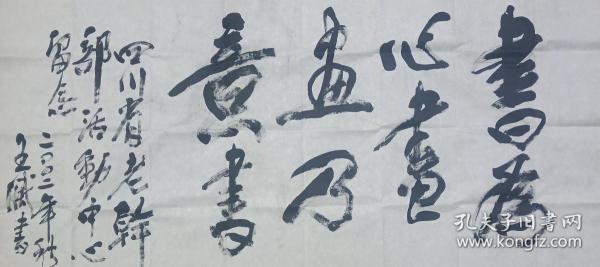 書为
心畫
畫乃
意書
四川省老幹
部活動中心
留念
二〇〇二年秋
王
書
孔夫子旧书网
www.kongfz.com